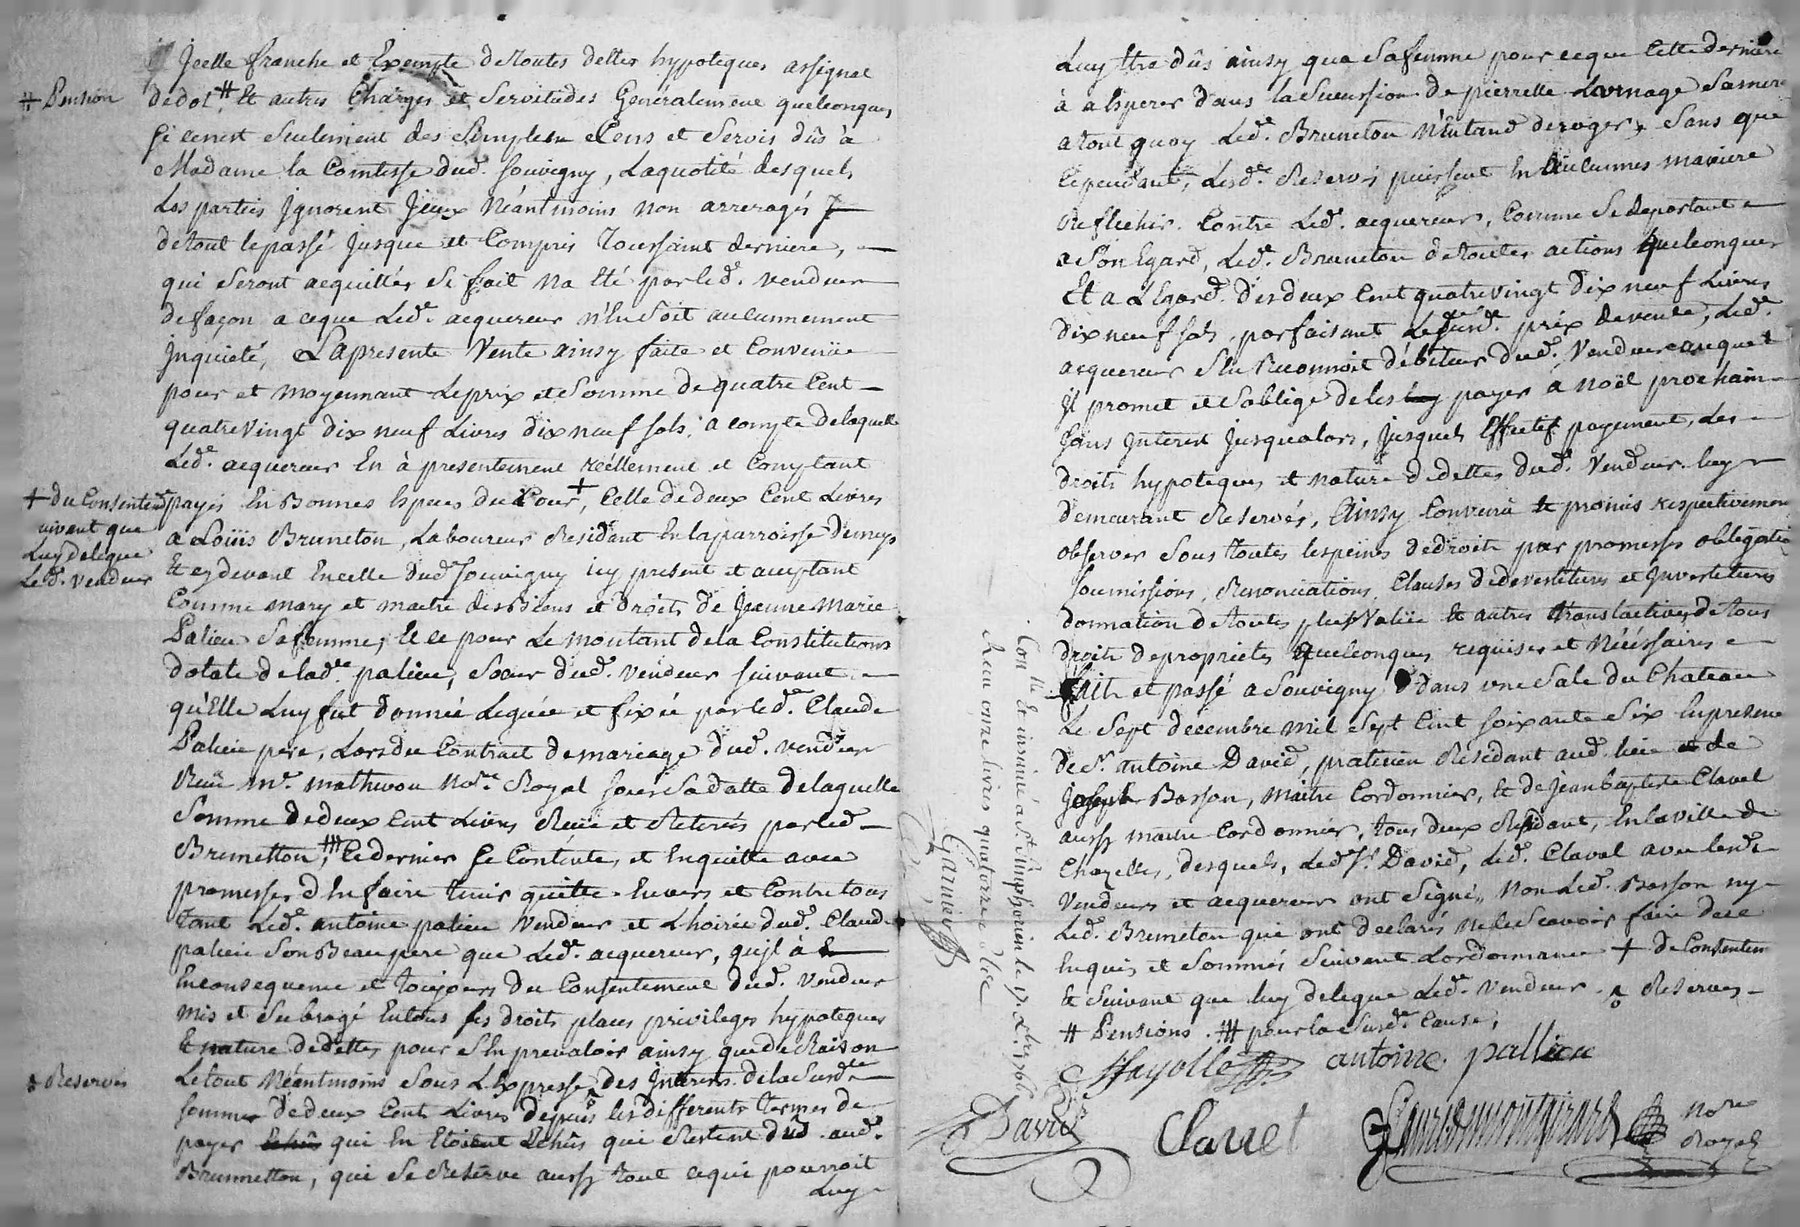 Jcelle franche et Exempte de toutes dettes hypoteques assignat
# Pension
de dot # Et autres Charges et Servitudes Generalement quelconques,
Si cenest Seulement des Simples Cens et Servis dûs à
Madame la Comtesse dud. Souvigny, Laquotité desquels
Les parties Jgnorent Jeux Néantmoins non arreragés
de tout le passé Jusque et Compris Toussaint derniere,
qui Seront acquittés Si fait Na Eté par led. vendeur
de façon a ceque Led. acquereur n'En Soit aucunnement
Jnquieté, La presente Vente ainsy faite et Convenüe
pour et moyennant Le prix et Somme de quatre Cent
quatre Vingt dix neuf Livres dix neuf Sols, a compte de laquelle
Led. acquereur En à presentement réellement et Comptant
+ du Consentem
payés En Bonnes Espèces du Cour +, Celle de deux Cent Livres
uivant que
Luy delegue
Led. vendeur
a Loüis Bruneton, Laboureur Residant En la parroisse de meys
Et cydevant En celle dud. Souvigny icy present et acceptant
Comme mary et maitre des Biens et droits de Jeanne Marie
Palieu Sa femme, Et ce pour Le montant de la Constitutions
dotale de lad. palieu, Sœur dud. Vendeur Suivant
qu'Elle Luy fut donnée Leguée et fixée par led. Claude
Palieu pere, Lors du Contract de mariage dud. vendeur
Reçu Mr. mathevon No.re Royal Sous Sa datte de laquelle
Somme de deux Cent Livres Reçüe et Retirée par led.
Brunetton, ### Ce dernier Se Contente, et En quitte avec
promesses d'En faire tenir quitte Envers et Contre tous
tant Led. antoine palieu Vendeur et L'hoirie dud. Claude
palieu Son Beaupere que Led. acquereur, qu'jl à
En consequence et toujours du Consentement dud. vendeur
mis et Subrogé En tous Ses droits places privileges hypoteques
Et nature de dettes pour S'En prevaloir ainsy que de Raison
Reserves
Le tout Néantmoins Sous L'Expresse des Jnterets de la Susd.
Somme de deux Cent Livres depuis les differents termes de
payer qui En Etoient Echûs qui Restent dûs aud.
Brunnetton, qui Se Reserve aussy tout ce qui pourroit
Luy
Luy Etre dûs ainsy que Sa femme pour ce que Cette derniere
à a Esperer dans la Sucession de pierrette Sa mere
a tout quoy Led. Bruneton N'Entend deroger, Sans que
Cependant, Lesd. Reserves puissent En aucunnes maniere
Reflechir Contre Led. acquereur, Comme Se departant
a Son Egard, Led. Bruneton de toutes actions quelconques
Et a L'Egard des deux Cent quatre vingt dix neuf Livres
dix neuf Sols, parfaisant Le Susd. prix de vente, Led.
acquereur S'En Reconnoit débiteur dud. Vendeur auquel
Jl promet et S'oblige de les payer à Noël prochain
Sans Jnterest Jusqualors, Jusques Effectif payement, Les
droits hypoteques et nature de dettes dud. Vendeur luy
demeurant Reservés, Ainsy Convenû Et promis respectivement
observer Sous toutes Les peines de droit par promesses obligations
Soumissions, Renonciations, Clauses de devestitures et Jnvestitures
donnation de toutes plus Valüe Et autres translactives de tous
droits de proprietés quelconques requises et Nécéssaires
Fait et passé a Souvigny dans une Sale du Chateau
Le Sept decembre mil Sept Cent Soixante Six En presence
de Sr. antoine David, praticien Résidant aud. lieu et de
Joseph Basson, maitre Cordonnier, Et de Jean baptiste Clavel
aussy maitre Cordonnier, tous deux Residant, En la ville de
Chazelles, desquels, Led. Sr. David, Led. Clavel avec lesd.
Vendeurs et acquereur ont Signé, Non Led. Basson ny
Led. Bruneton qui ont declarés ne le Scavoir faire de ce
Enquis et Sommés Suivant Lordonnance + de Consentem
Et Suivant que luy delegue Led. vendeur. Reserves
# Pensions. ### pour la Susd. Cause,
Con.lle Et insinué à St. Simphorien le 17 Xbre 1766
Recu onze livres quatorze s.
Garnier
Fayolle antoine pallieu
David Clavel Not.re
Royal